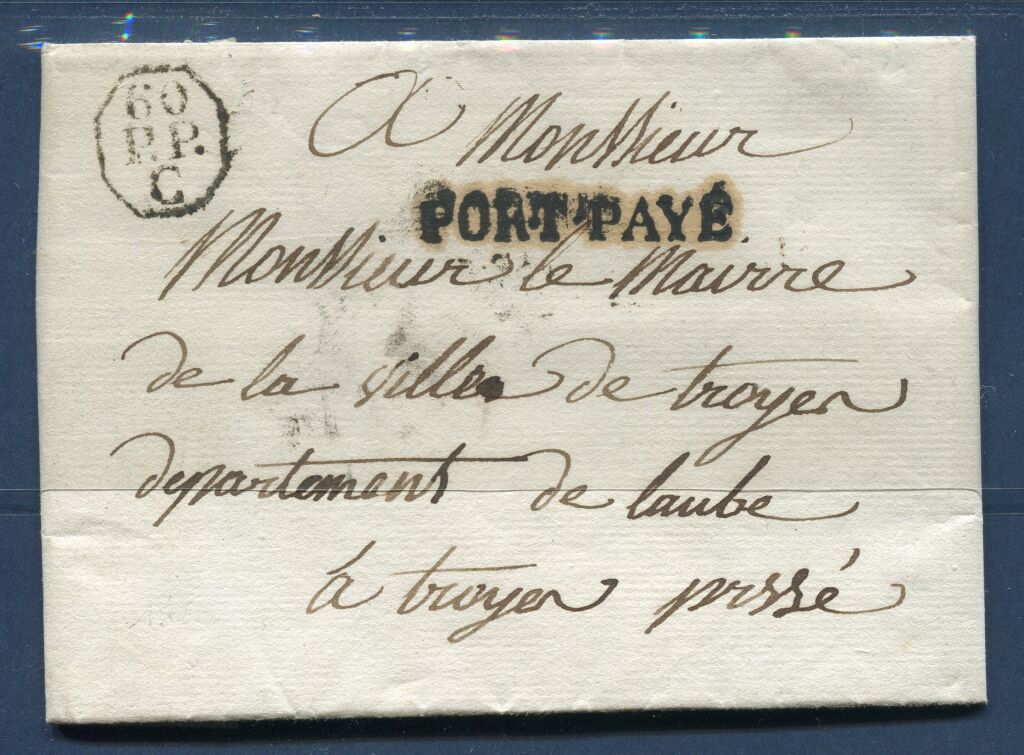 60
P.P.
C
A Monssieur
PORT PAYÉ
Monssieur le Mairre
de la ville de troyes
departement de laube
à troyes prssé